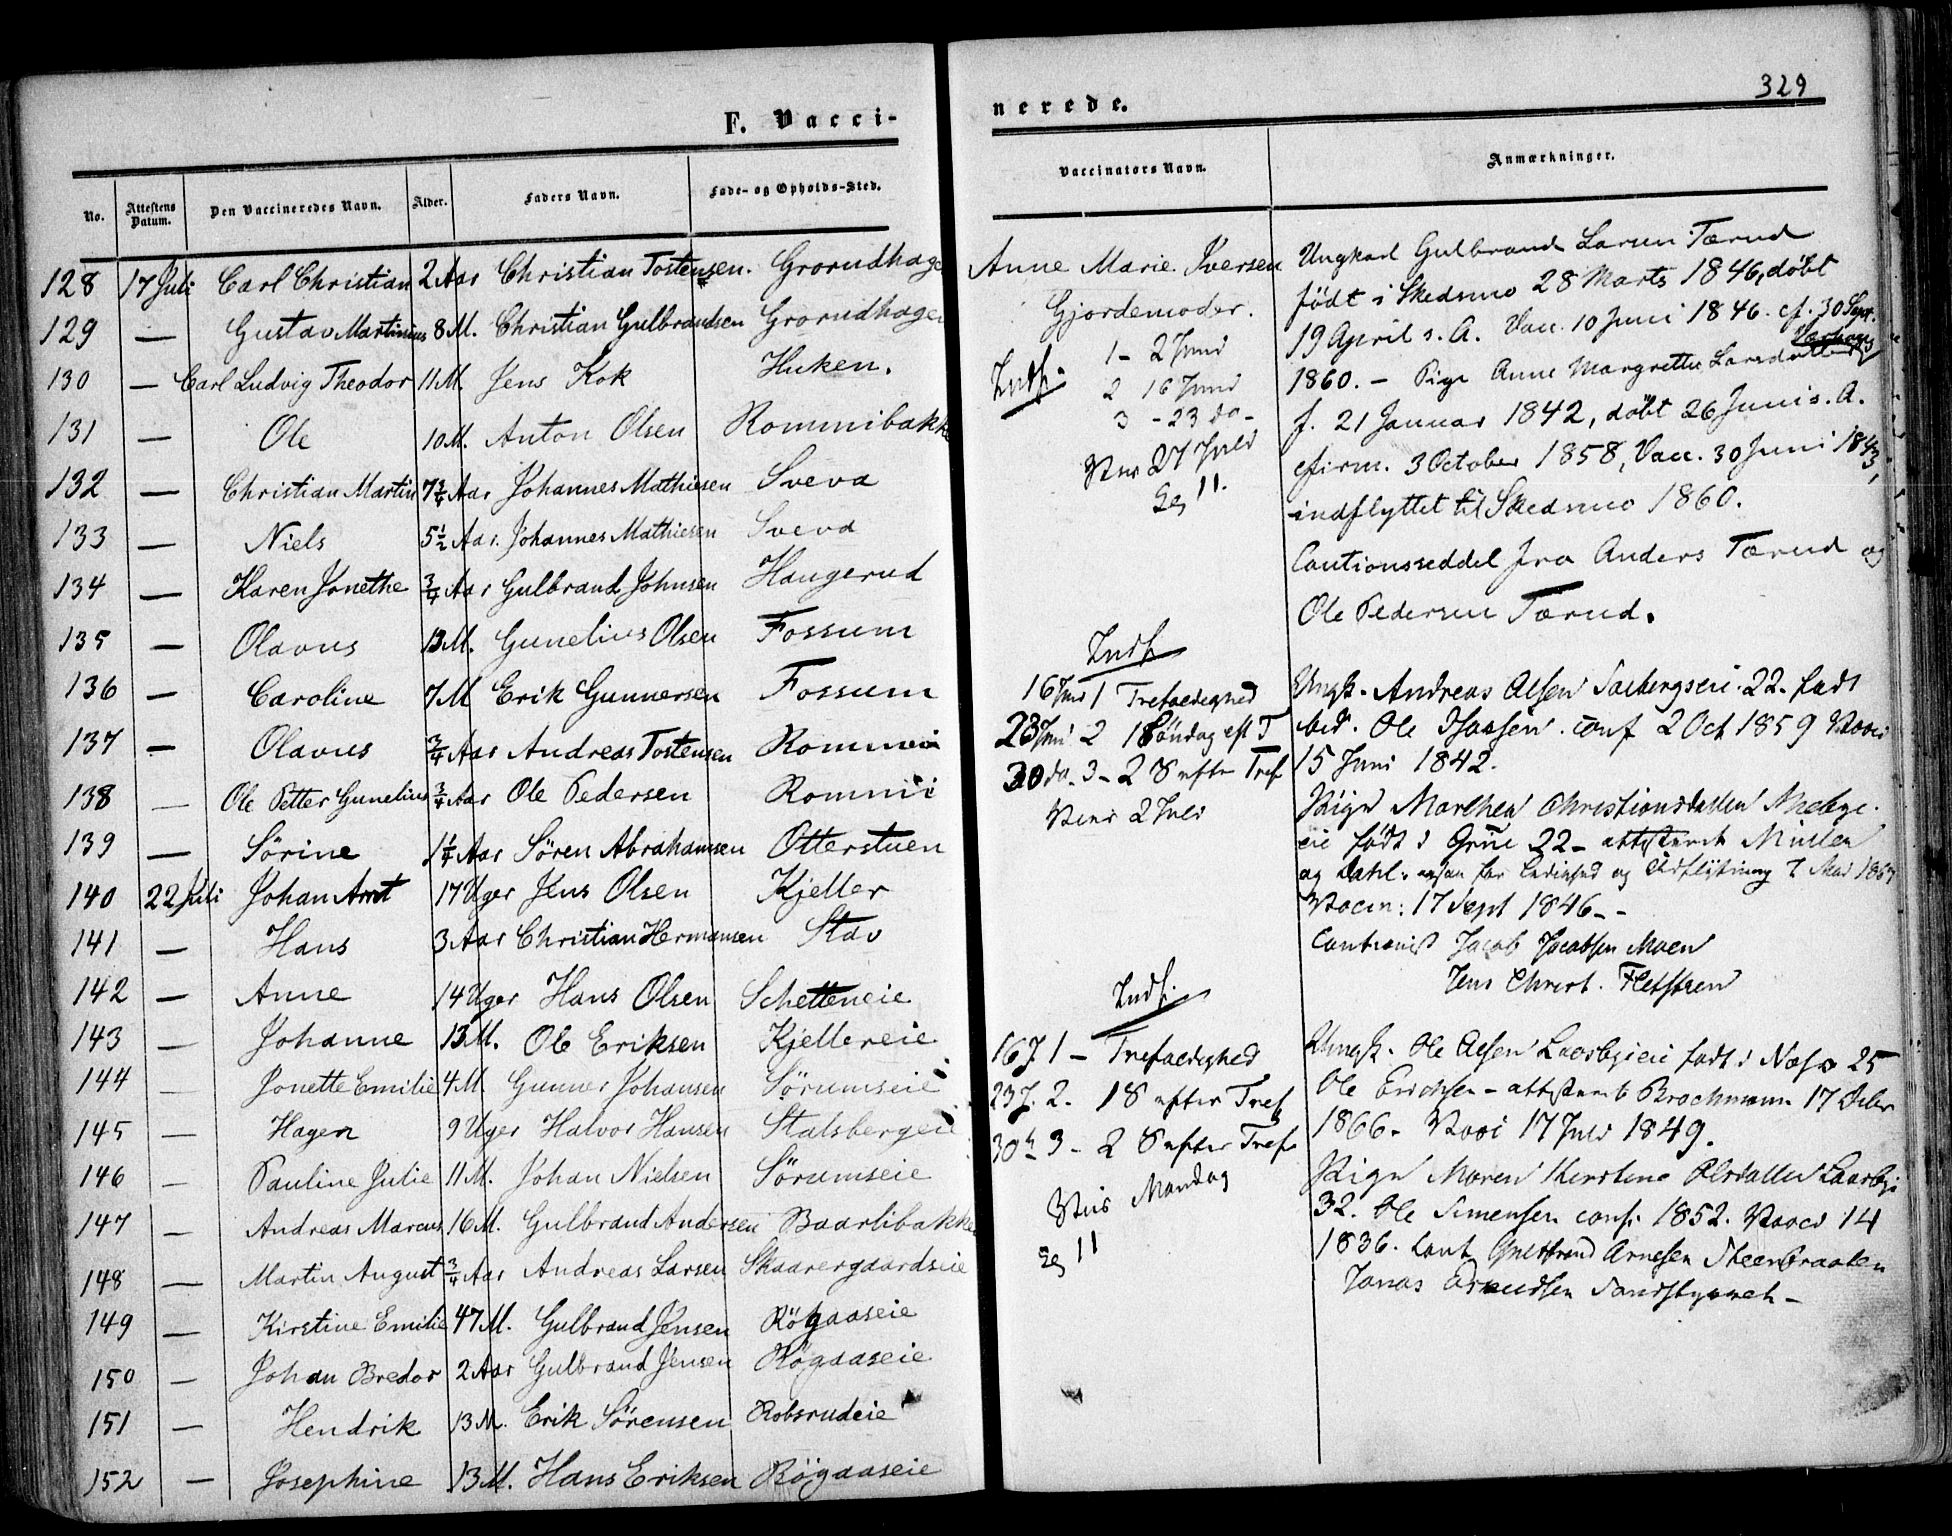 329
F. Vacci-
nerede.
No. Attestens Datum. Den Vaccineredes Navn. Alder. Faders Navn. Føde- og Opholds-Sted.
128 17 Juli Carl Christian 2 Aar Christian Tostensen. Grorudhagen
129 — Gustav Martinius 8 M. Christian Gulbrandsen Grorudhagen
130 — Carl Ludvig Theodor 11 M Jens Kok Huken.
131 — Ole 10 M. Anton Olsen Rommibakke
132 — Christian Martin 7¾ Aar Johannes Mathiesen Sveva
133 — Niels 5½ Aar. Johannes Mathiesen Sveva
134 — Karen Jonethe ¾ Aar Gulbrand Johnsen Haugerud
135 — Olavus 13 M. Gunelius Olsen Fossum
136 — Caroline 7 M Erik Gunnersen Fossum
137 — Olavus ¾ Aar Andreas Tostensen Rommi
138 — Ole Petter Gunelius ¾ Aar Ole Pedersen Rommi
139 — Sörine 1¼ Aar Sören Abrahamsen Otterstuen
140 22 Juli Johan Arnt 17 Uger Jens Olsen Kjeller
141 — Hans 3 Aar Christian Hermansen Stav
142 — Anne 14 Uger Hans Olsen Schetteneie
143 — Johanne 13 M. Ole Eriksen Kjellereie
144 — Jonette Emilie 4 M Gunner Johansen Sörumseie
145 — Hagen 9 Uger Halvor Hansen Stalsbergeie
146 — Pauline Julie 11 M. Johan Nielsen Sörumseie
147 — Andreas Marcus 16 M. Gulbrand Andersen Baarlibakke
148 — Martin August ¾ Aar Andreas Larsen Skaarergaardseie
149 — Kirstine Emilie 47 M. Gulbrand Jensen Rögaaseie
150 — Johan Bredor 2 Aar Gulbrand Jensen Rögaaseie
151 — Hendrik 13 M. Erik Sörensen Robsrudeie
152 — Josephine 13 M. Hans Eriksen Rögaaseie
Vaccinators Navn.
Anne Marie Iversen
Gjordemoder.
1 - 2 Juni
2 16 Juni
3 - 23 do -
27 Juli
11.
16 Juni 1 Trefoldighed
23 Juni 2 1 Söndag eft T
30 do. 3 - 2 S efter Tref
2 Juli
16 J 1 - Trefoldighed
23 J. 2. 1 S efter Tref
30 3 - 2 S efter Tref
Mandag
11
Anmærkninger.
Ungkarl Gulbrand Larsen Tærud
födt i Skedsmo 28 Marts 1846, döbt
19 April s. A. Vacc. 10 Juni 1846. cf. 30 Sept.
1860. - Pige Anne Margrethe Larsdatter
f. 21 Januar 1842, döbt 26 Juni s. A.
cfirm. 3 October 1858, Vacc. 30 Juni 1843,
indflyttet til Skedsmo 1860.
Cautionsseddel fra Anders Tærud og
Ole Pedersen Tærud.
Ungk. Andreas Olsen 22. födt
Ole conf 2 Oct 1859 Vacci
15 Juni 1842.
Pige Marthea Christiansdatter
eie födt i Grue 22 -
og Dahl. for Ledighed og Udflytning 7 Mai
Vaccin: 17 Sept 1846 - -
Jacob Jacobsen Moen
Jens Christ.
Ungk. Ole Olsen födt i Næs 25
Ole Erichsen - attesteret Brochmann 17
1866 - Vacci 17 Juli 1849.
Pige Maren Kerstine Olsdatter
32. Ole Simensen conf. 1852. Vacci 14
1836. Caut Gulbrand Arnesen Steenbraaten
Jonas